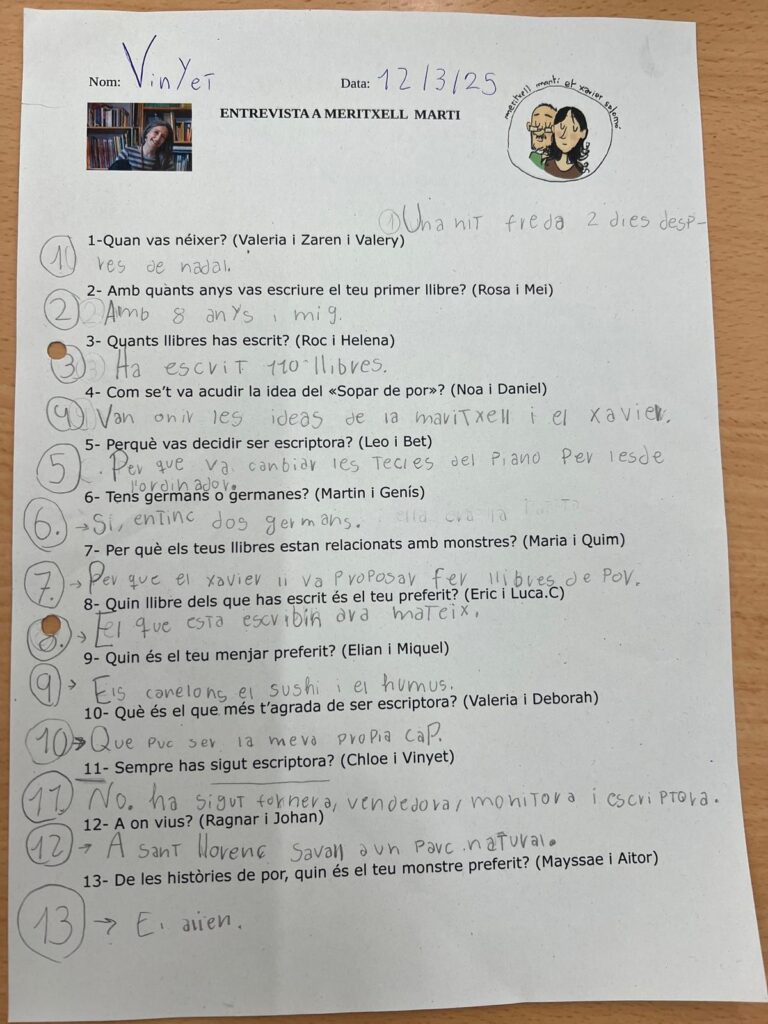 Nom: Vinyet Data: 12/3/25
meritxell martí et xavier salomó
ENTREVISTA A MERITXELL MARTI
① Una nit freda 2 dies desp-
1-Quan vas néixer? (Valeria i Zaren i Valery)
10 res de nadal.
2- Amb quants anys vas escriure el teu primer llibre? (Rosa i Mei)
2 Amb 8 anys i mig.
3- Quants llibres has escrit? (Roc i Helena)
3 Ha escrit 110 llibres.
4- Com se't va acudir la idea del «Sopar de por»? (Noa i Daniel)
4 Van onir les ideas de la maritxell i el xavier.
5- Perquè vas decidir ser escriptora? (Leo i Bet)
5. Per que va canbiar les tecles del piano per lesde
l'ordinador.
6- Tens germans o germanes? (Martin i Genís)
6. → Si, entinc dos germans.
7- Per què els teus llibres estan relacionats amb monstres? (Maria i Quim)
7. → Per que el xavier li va proposar fer llibres de por.
8- Quin llibre dels que has escrit és el teu preferit? (Eric i Luca.C)
8. → El que esta escribin ara mateix.
9- Quin és el teu menjar preferit? (Elian i Miquel)
9 → Els canelons el sushi i el humus.
10- Què és el que més t'agrada de ser escriptora? (Valeria i Deborah)
10 → Que puc ser la meva propia cap.
11- Sempre has sigut escriptora? (Chloe i Vinyet)
11. No. ha sigut fornera, vendedora, monitora i escriptora.
12- A on vius? (Ragnar i Johan)
12 → A sant llorenç savall aun parc natural.
13- De les històries de por, quin és el teu monstre preferit? (Mayssae i Aitor)
13 → El alien.